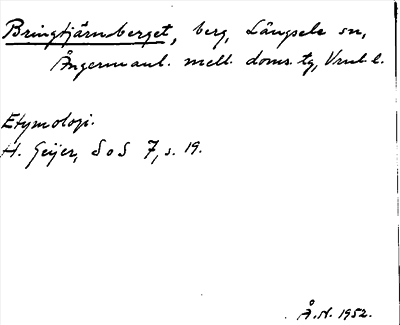 Bringtjärnberget, berg, Långsele sn,
Ångermanl. mell. doms. tg, Vrnl l.
Etymologi.
H. Geijer, S o S 7, s. 19.
Å. N. 1952.